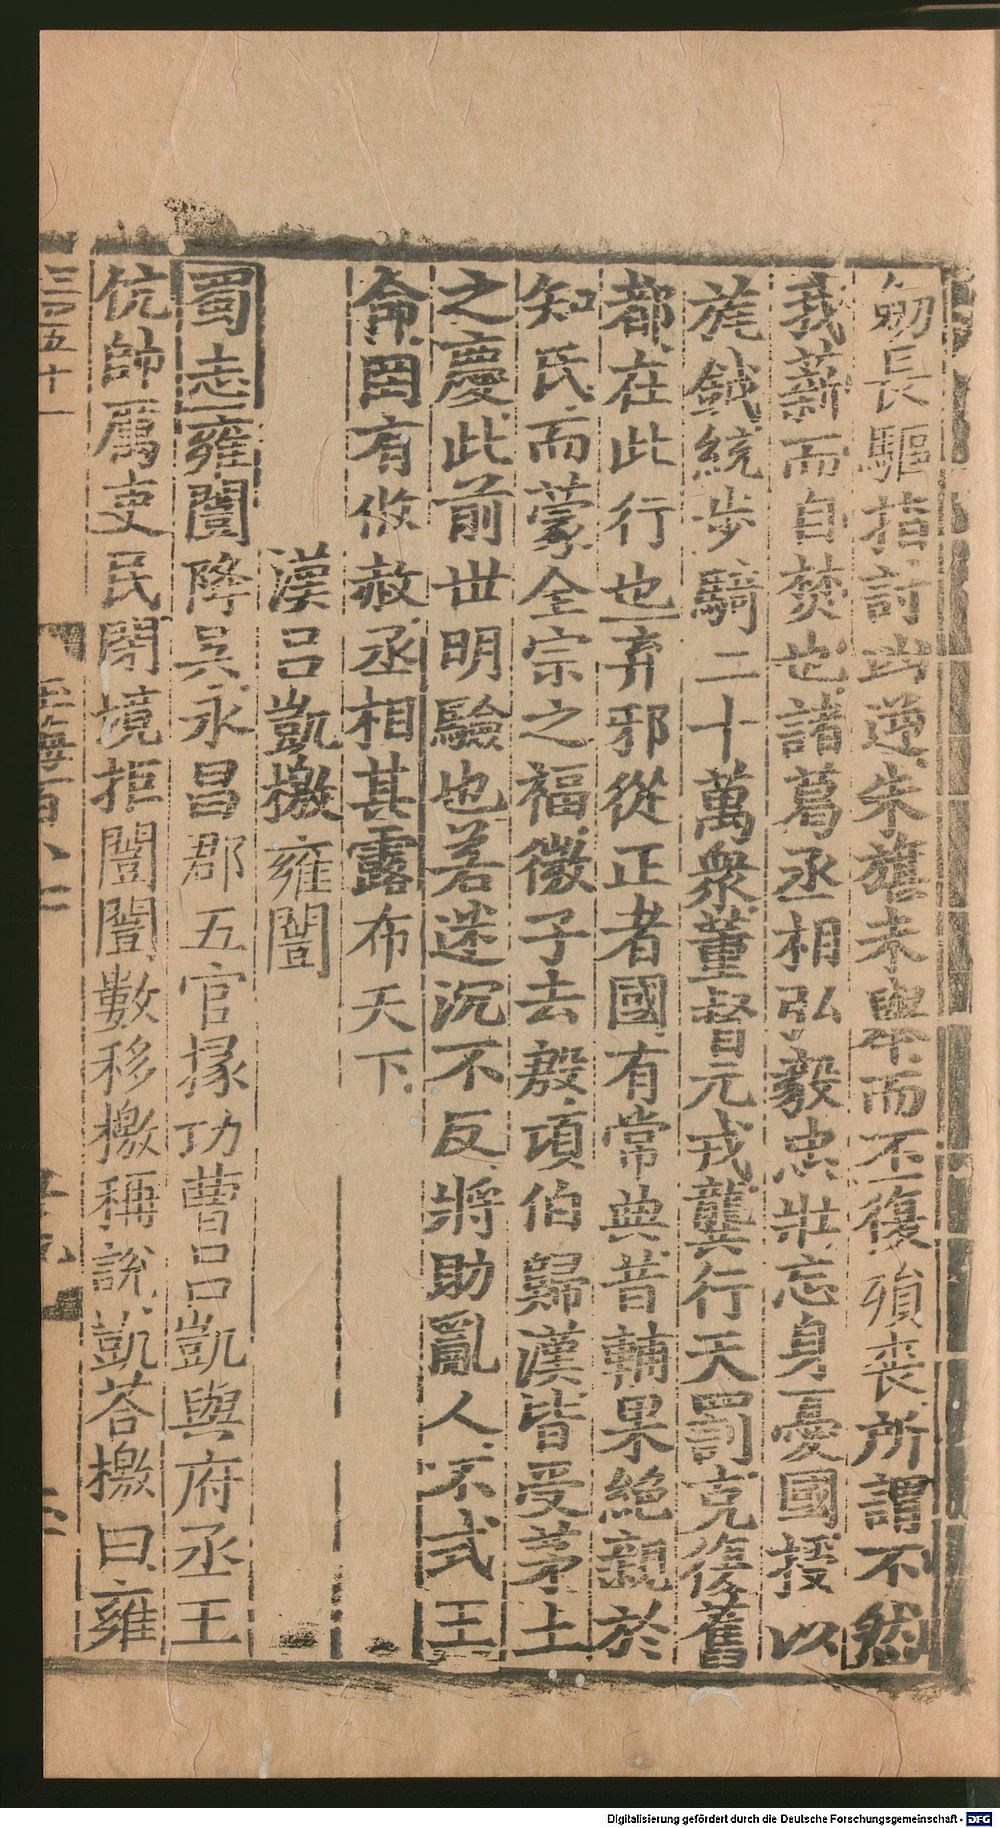 劒長驅指討凶逆朱旗未舉而丕復殞喪所謂不然
我薪而自焚也諸葛丞相弘毅忠壯忘身憂國授以
旄鉞統步騎二十萬衆董督元戎龔行天罰克復舊
都在此行也弃邪從正者國有常典昔輔果絶親於
知氏而蒙全宗之福微子去殷項伯歸漢皆受茅土
之慶此前丗明驗也若迷沉不反將助亂人不式王
命罔有攸赦丞相其露布天下
漢吕凱檄雍闓
蜀志雍闓降吳永昌郡五官掾功曹吕凱與府丞王
伉帥厲吏民閉境拒闓闓數移檄稱説凱荅檄曰雍
三百五十一
玉海百八七
Digitalisierung gefördert durch die Deutsche Forschungsgemeinschaft - DFG